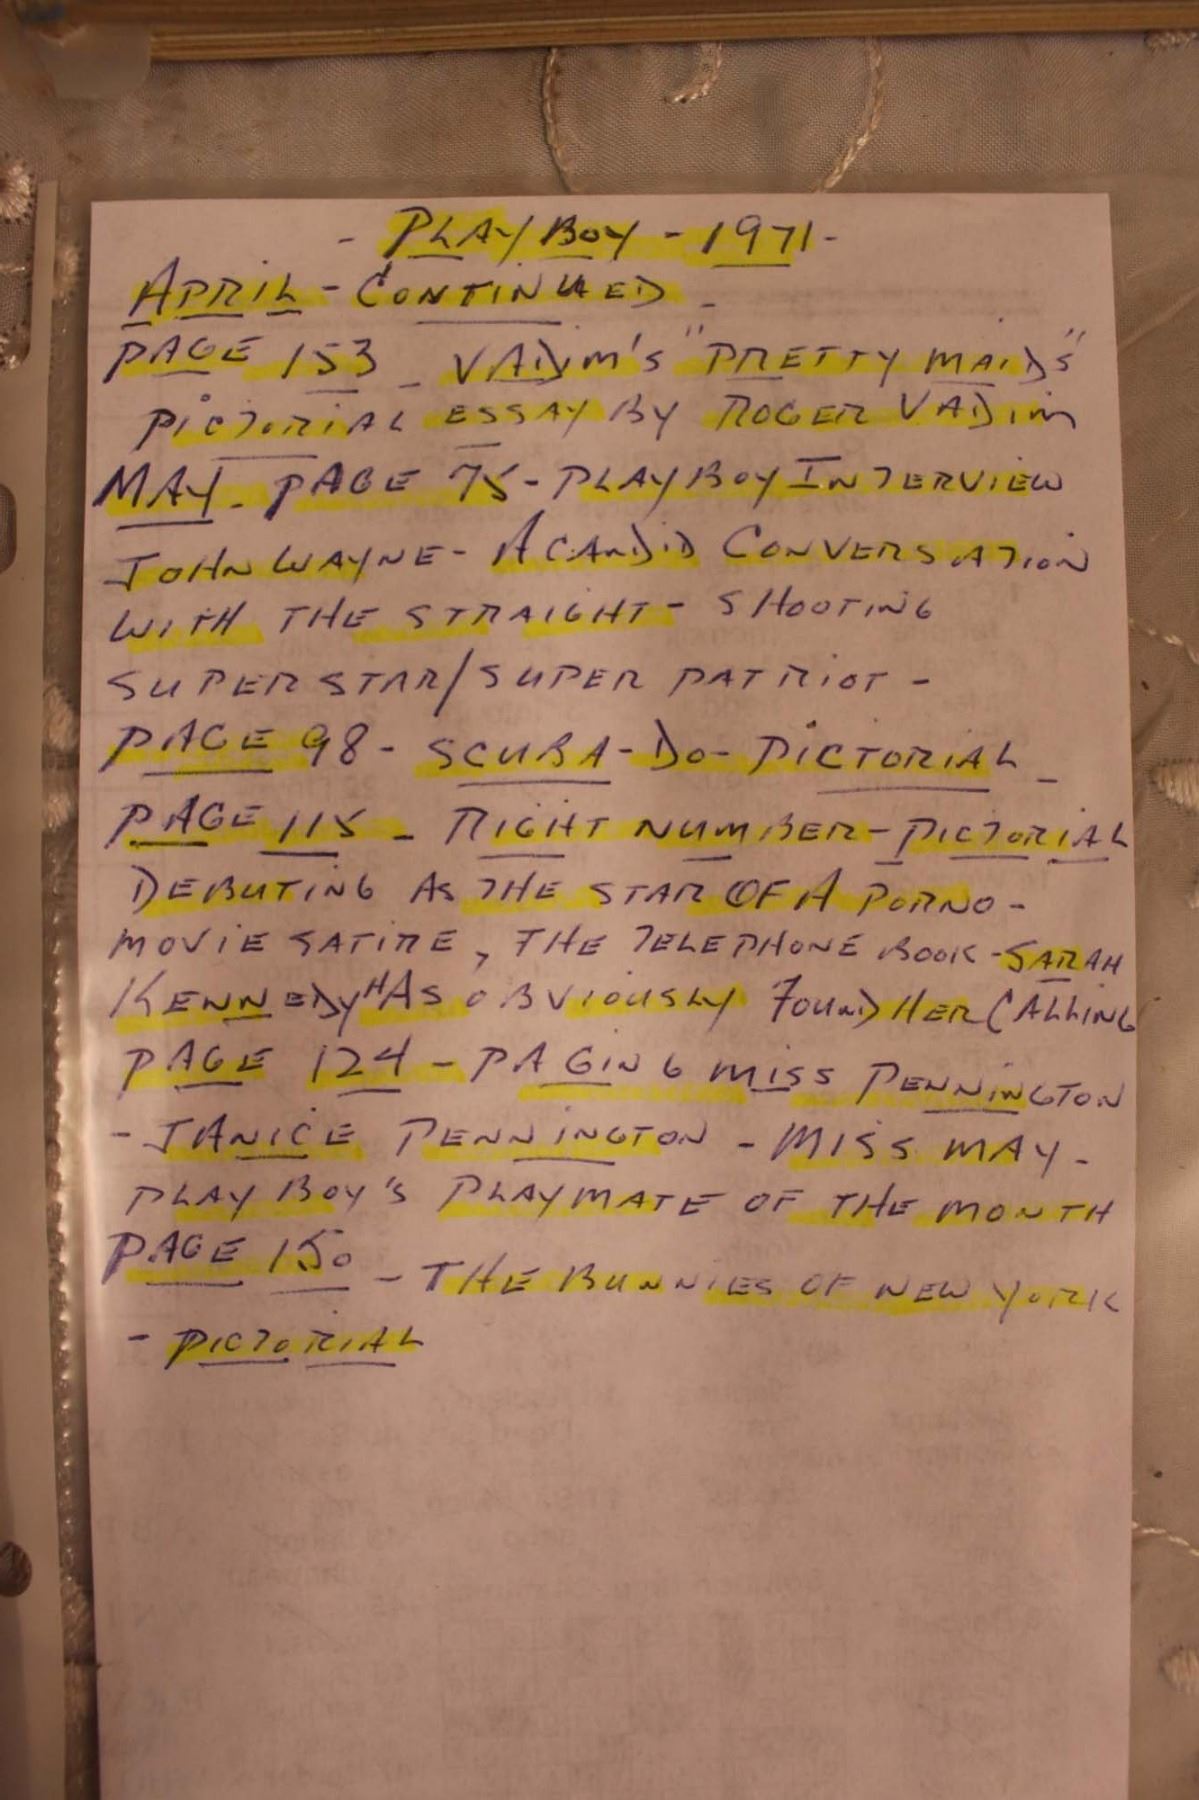 - PLAYBOY - 1971 -
APRIL - CONTINUED -
PAGE 153 - VADIM'S "PRETTY MAIDS"
PICTORIAL ESSAY BY ROGER VADIM
MAY - PAGE 75 - PLAYBOY INTERVIEW
JOHN WAYNE - A CANDID CONVERSATION
WITH THE STRAIGHT - SHOOTING
SUPERSTAR/SUPER PATRIOT -
PAGE 98 - SCUBA - DO - PICTORIAL -
PAGE 115 - RIGHT NUMBER - PICTORIAL
DEBUTING AS THE STAR OF A PORNO -
MOVIE SATIRE, THE TELEPHONE BOOK - SARAH
KENNEDY HAS OBVIOUSLY FOUND HER CALLING
PAGE 124 - PAGING MISS PENNINGTON
- JANICE PENNINGTON - MISS MAY -
PLAYBOY'S PLAYMATE OF THE MONTH
PAGE 150 - THE BUNNIES OF NEW YORK
- PICTORIAL